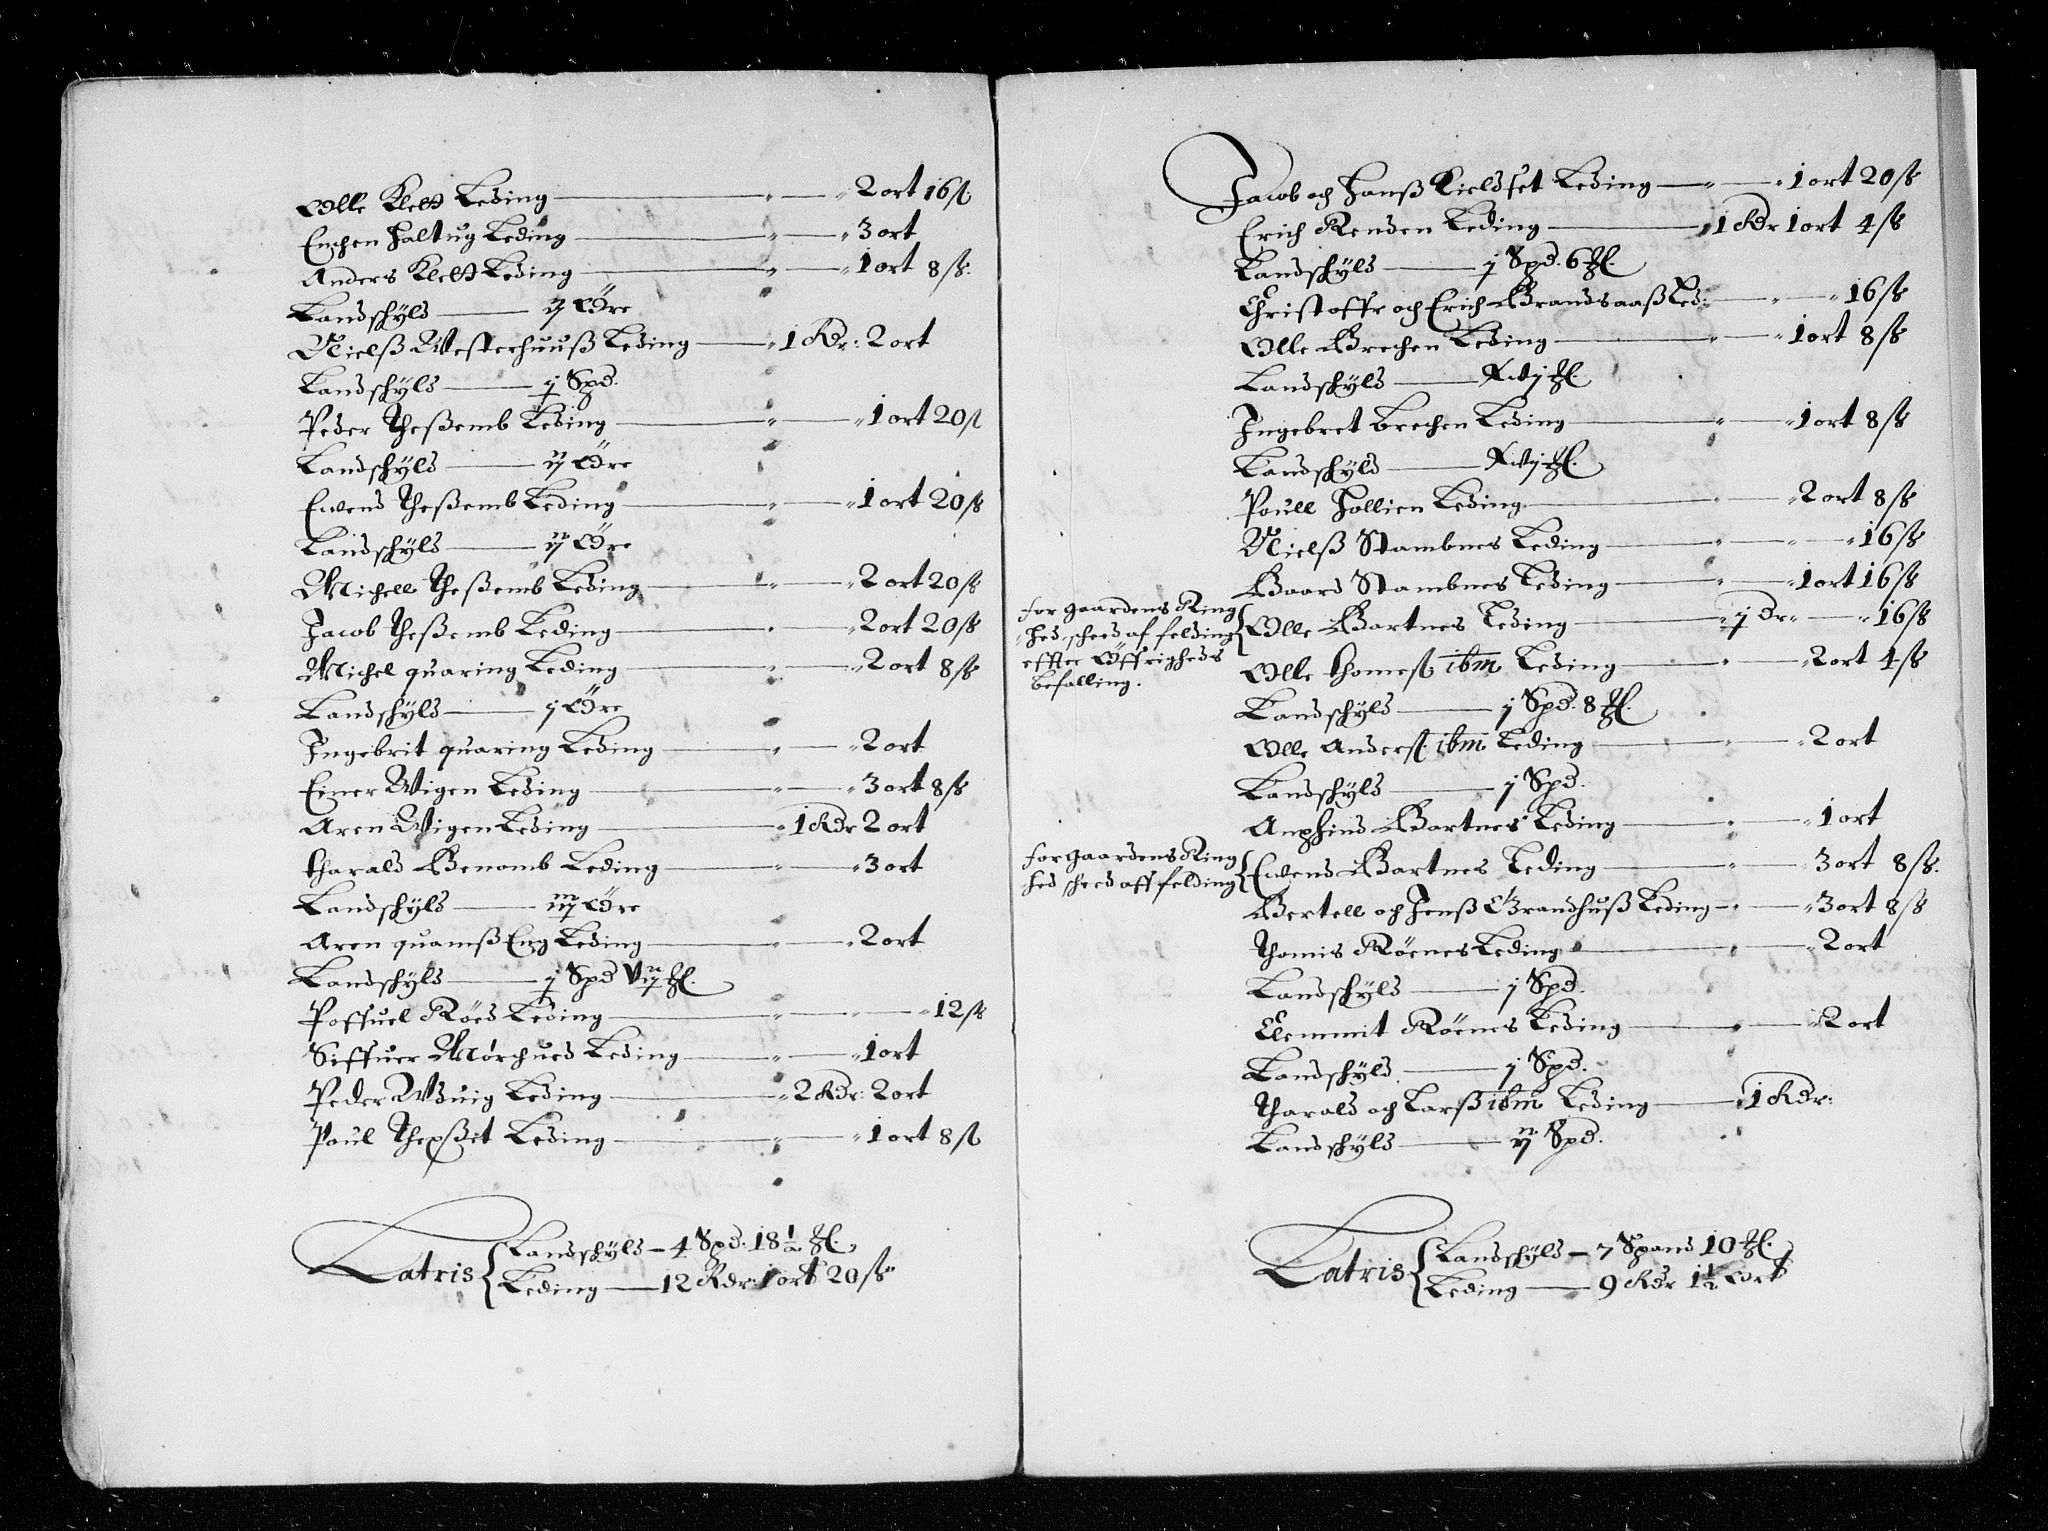 Olle Klett Leding — 2 ort 16 ß
Enchen Haltug Leding — 3 ort
Anders Klett Leding — 1 ort 8 ß.
Landschyld — ij Öre
Nielß Westerhuuß Leding — 1 Rdr: 2 ort
Landschyld — j Spd.
Peder Theßemb Leding — 1 ort 20 ß
Landschyld — ij Öre
Ewend Theßemb Leding — 1 ort 20 ß
Landschyld — ij Öre
Michell Theßemb Leding — 2 ort 20 ß
Jacob Theßemb Leding — 2 ort 20 ß
Michel quaring Leding — 2 ort 8 ß
Landschyld — j Öre
Ingebrit quaring Leding — 2 ort
Einer Wigen Leding — 3 ort 8 ß
Aren Wigen Leding — 1 Rdr 2 ort
tharald Benomb Leding — 3 ort
Landschyld — iij Öre
Aren quamß Eng Leding — 2 ort
Landschyld — j Spd Vij
Poffuel Röed Leding — 12 ß
Siffuer Mörchued Leding — 1 ort
Peder Wduig Leding — 2 Rdr: 2 ort
Paul Thepßet Leding — 1 ort 8 ß
Latris { Landschyld – 4 Spd. 18 1/2
Leding — 12 Rdr: 1 ort 20 ß
Jacob och Hanß Kieldset Leding — 1 ort 20 ß
Erich Renden Leding — 1 Rdr 1 ort 4 ß
Landschyld — j Spd. 6
Christoffr och Erich Brandsaaß Led: — 16 ß
Olle Brechen Leding — 1 ort 8 ß
Landschyld — Xvj
Ingebret Brechen Leding — 1 ort 8 ß
Landschyld — Xvj
Poull Hollien Leding — 2 ort 8 ß
Nielß Stambnes Leding — 16 ß
Baard Stambnes Leding — 1 ort 16 ß
for gaardens Ring
hed scheed af felding
effter Öffrigheds
befalling.
{ Olle Bartnes Leding — j Dr — 16 ß
Olle thomeß. ibm Leding — 2 ort 4 ß
Landschyld — j Spd. 8
Olle Anderß. ibm Leding — 2 ort
Landschyld — j Spd.
Anphind Bartnes Leding — 1 ort
for gaardens Ring
hed scheed aff felding
{ Ewend Bartnes Leding — 3 ort 8 ß.
Bertell och Jenß Brandhuß Leding — 3 ort 8 ß
Thomis Röenes Leding — 2 ort
Landschyld — j Spd.
Clemmit Röenes Leding — 2 ort
Landschyld — j Spd.
Tharald och Larß ibm Leding — 1 Rdr:
Landschyld — ij Spd.
Latris { Landschyld – 7 Spand 10
Leding — 9 Rdr 1 1/2 ort